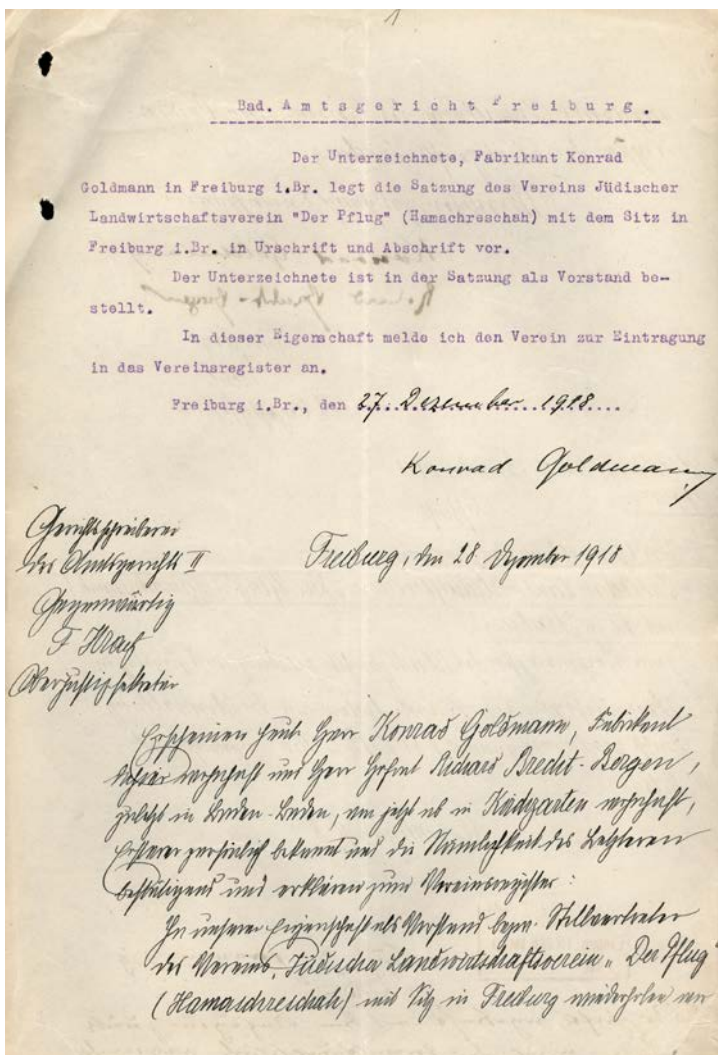 1
Bad. Amtsgericht Freiburg.
Der Unterzeichnete, Fabrikant Konrad
Goldmann in Freiburg i.Br. legt die Satzung des Vereins Jüdischer
Landwirtschaftsverein "Der Pflug" (Hamachreschah) mit dem Sitz in
Freiburg i.Br. in Urschrift und Abschrift vor.
Der Unterzeichnete ist in der Satzung als Vorstand be-
stellt.
In dieser Eigenschaft melde ich den Verein zur Eintragung
in das Vereinsregister an.
Freiburg i.Br., den 27. Dezember 1918
Konrad Goldmann
Gerichtsschreiberei
des Amtsgerichts II
Freiburg, den 28 Dezember 1918
Gegenwärtig
Oberjustizsekretär
Erscheinen heute Herr Konrad Goldmann, Fabrikant
dahier wohnhaft und Herr Hofrat Richard Brecht-Bergen,
zuletzt in Baden-Baden, von jetzt ab in Kirchzarten wohnhaft,
Ersterer persönlich bekannt und die Nämlichkeit des Letzteren
bestätigend und erklären zum Vereinsregister:
In unserer Eigenschaft als Vorstand bezw. Stellvertreter
des Vereins, Jüdischer Landwirtschaftsverein „Der Pflug"
(Hamaschreschah) mit Sitz in Freiburg wiederholen wir